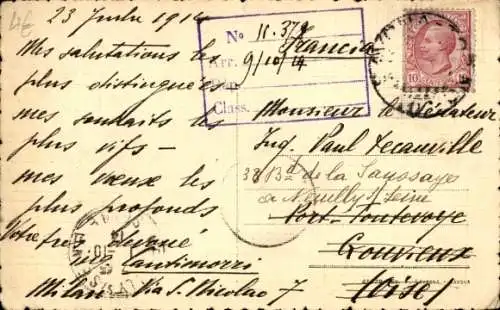 4€
23 Juله 1914
Mes salutations les
plus distinguées
mes souhaits les
plus vifs —
mes vœux les
plus profonds
Votre très dévoué
Santimorri
Milan Via S. Nicolao 7
No 11.378
Arr. 9/10/14
Dép.
Class.
Francia
10
Monsieur le Sénateur
Ing. Paul Decauville
38 13d de la Saussaye
a Neuilly s/ Seine
Port-Fontenoye
Gouvieux
(Oise)